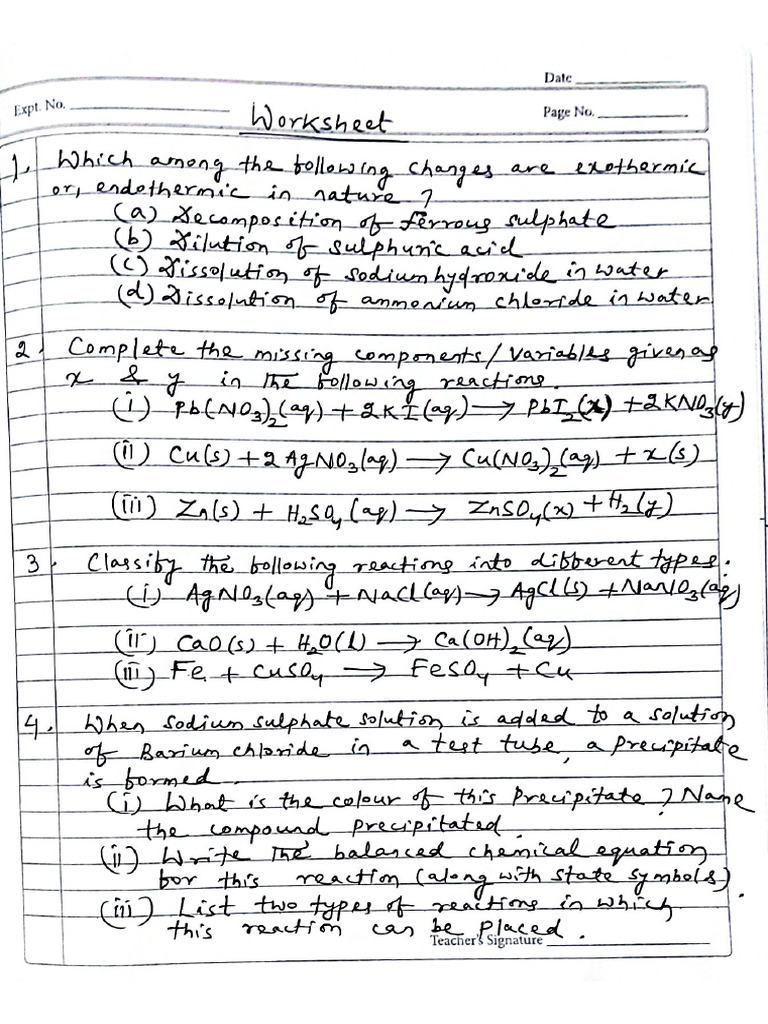 Date
Expt. No.
Page No.
Worksheet
1. Which among the following changes are exothermic
or, endothermic in nature ?
(a) Decomposition of ferrous sulphate
(b) Dilution of sulphuric acid
(c) Dissolution of sodium hydroxide in water
(d) Dissolution of ammonium chloride in water
2. Complete the missing components/variables given as
x & y in the following reactions.
(i) Pb(NO3)2(aq) + 2KI(aq) → PbI2(x) + 2KNO3(y)
(ii) Cu(s) + 2AgNO3(aq) → Cu(NO3)2(aq) + x(s)
(iii) Zn(s) + H2SO4(aq) → ZnSO4(x) + H2(y)
3. Classify the following reactions into different types.
(i) AgNO3(aq) + NaCl(aq) → AgCl(s) + NaNO3(aq)
(ii) CaO(s) + H2O(l) → Ca(OH)2(aq)
(iii) Fe + CuSO4 → FeSO4 + Cu
4. When sodium sulphate solution is added to a solution
of Barium chloride in a test tube, a precipitate
is formed.
(i) What is the colour of this precipitate ? Name
the compound precipitated.
(ii) Write the balanced chemical equation
for this reaction (along with state symbols).
(iii) List two types of reactions in which
this reaction can be placed.
Teacher's Signature